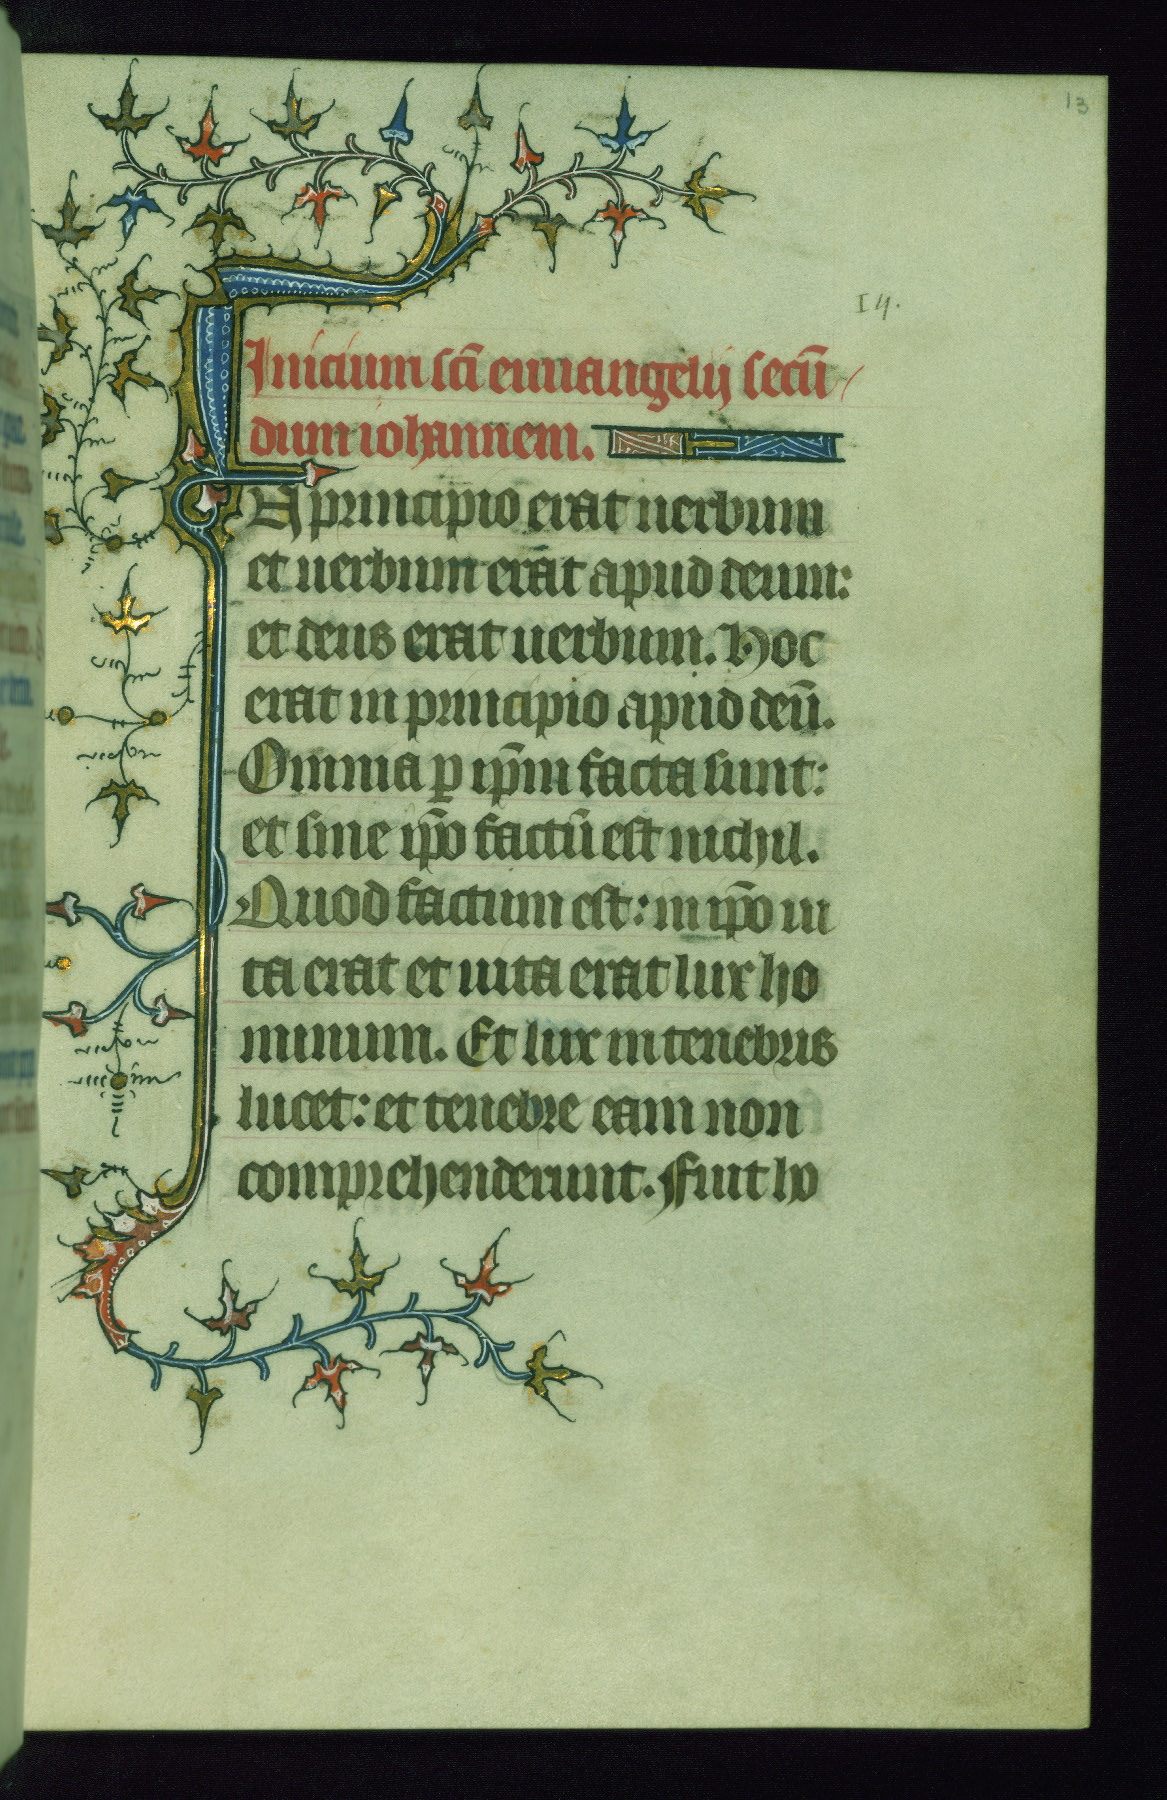 13
I4.
Inicium scī euuangelij secū
dum iohannem.
A principio erat uerbum
et uerbum erat apud deum:
et deus erat uerbum. Hoc
erat in principio apud deū.
Omnia ꝑ ip̄m facta sunt:
et sine ip̄o factū est nichil.
Quod factum est: in ip̄o ui
ta erat et uita erat lux ho
minum. Et lux in tenebris
lucet: et tenebre eam non
comprehenderunt. Fuit ho